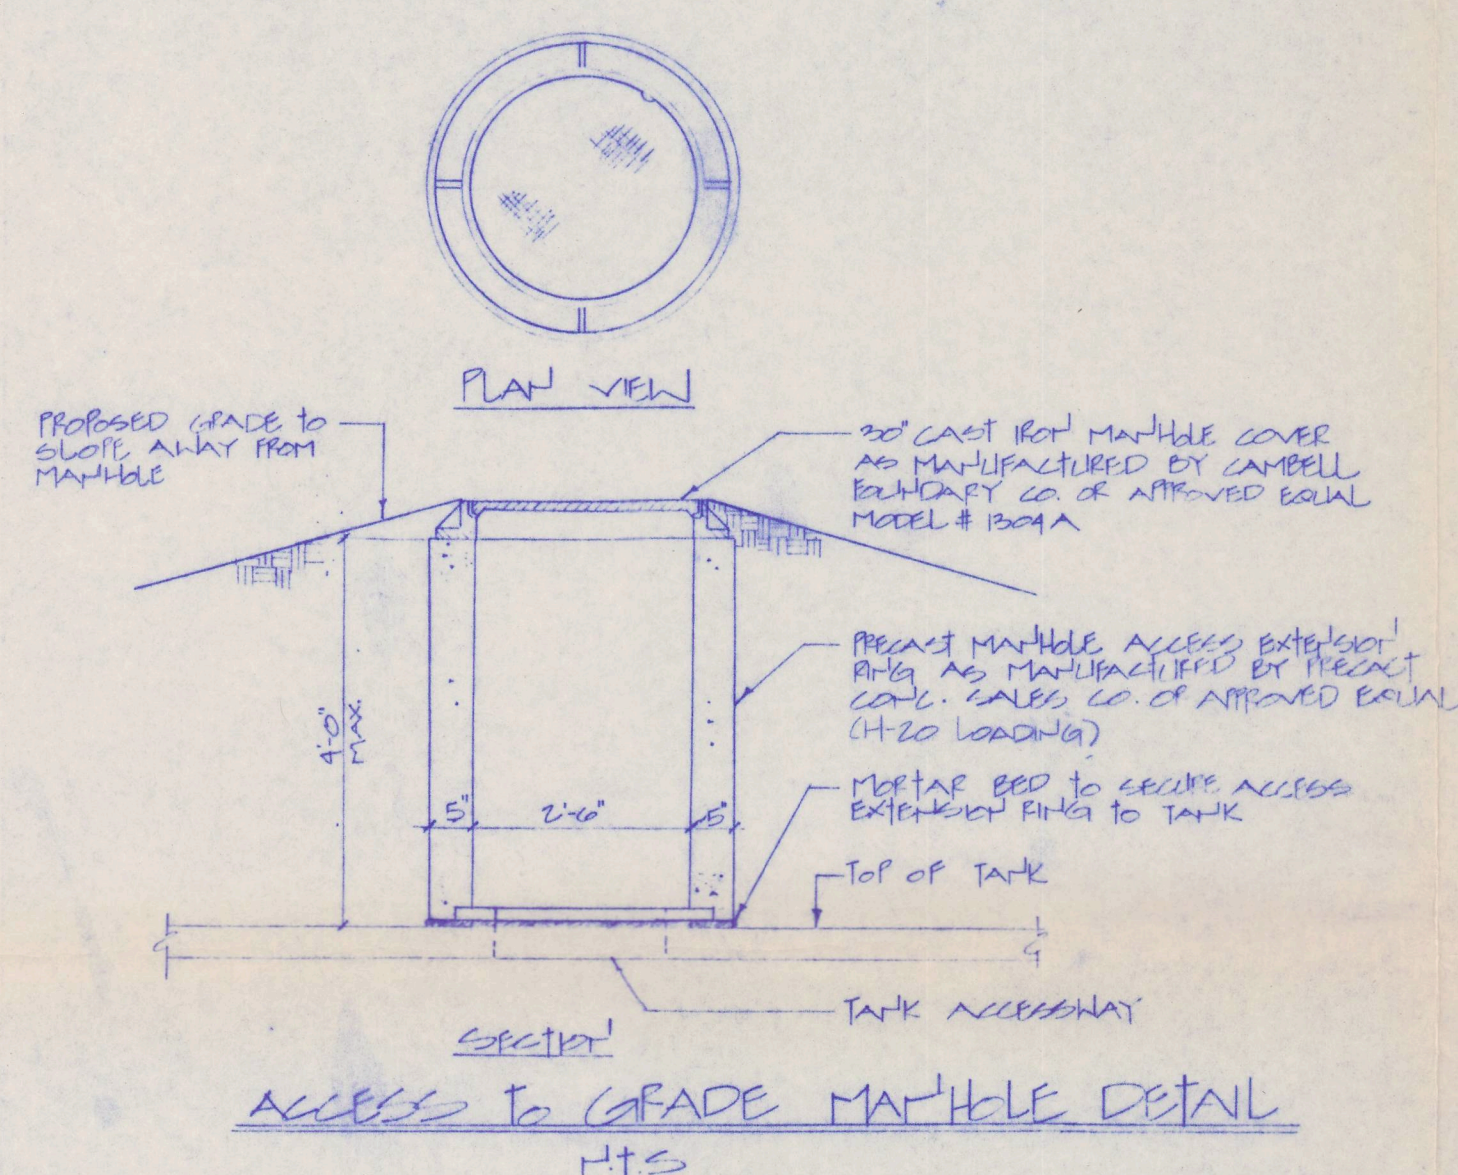 PLAN VIEW
PROPOSED GRADE to
SLOPE AWAY FROM
MANHOLE
30" CAST IRON MANHOLE COVER
AS MANUFACTURED BY CAMBELL
FOUNDARY CO. OR APPROVED EQUAL
MODEL # 1304A
PRECAST MANHOLE ACCESS EXTENSION
RING AS MANUFACTURED BY PRECAST
CONC. SALES CO. OR APPROVED EQUAL
(H-20 LOADING)
4'-0"
MAX.
5"
2'-6"
5"
MORTAR BED to SECURE ACCESS
EXTENSION RING to TANK
TOP OF TANK
TANK ACCESSWAY
SECTION
ACCESS to GRADE MANHOLE DETAIL
N.T.S